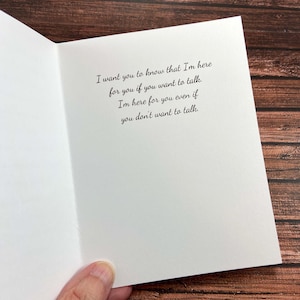 I want you to know that I'm here
for you if you want to talk.
I'm here for you even if
you don't want to talk.